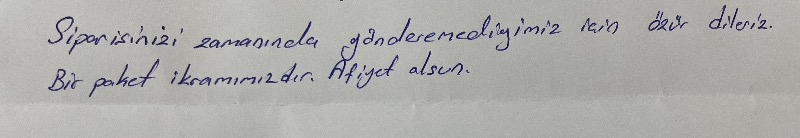 Siparişinizi zamanında gönderemediğimiz için özür dileriz.
Bir paket ikramımızdır. Afiyet olsun.